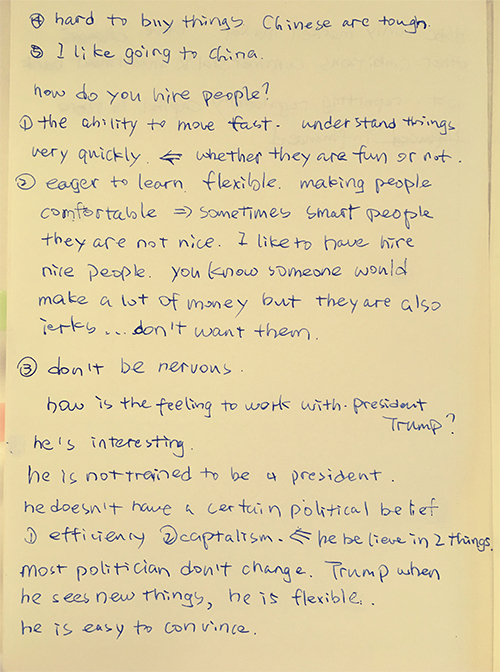 ④ hard to buy things. Chinese are tough.
⑤ I like going to china.
how do you hire people?
① the ability to move fast. understand things
very quickly. ⇐ whether they are fun or not.
② eager to learn. flexible. making people
comfortable ⇒ sometimes smart people
they are not nice. I like to have hire
nice people. you know someone would
make a lot of money but they are also
jerks... don't want them.
③ don't be nervous.
how is the feeling to work with president
Trump?
he's interesting.
he is not trained to be a president.
he doesn't have a certain political belief
① efficiency ② captalism. ⇐ he believe in 2 things.
most politician don't change. Trump when
he sees new things, he is flexible.
he is easy to convince.